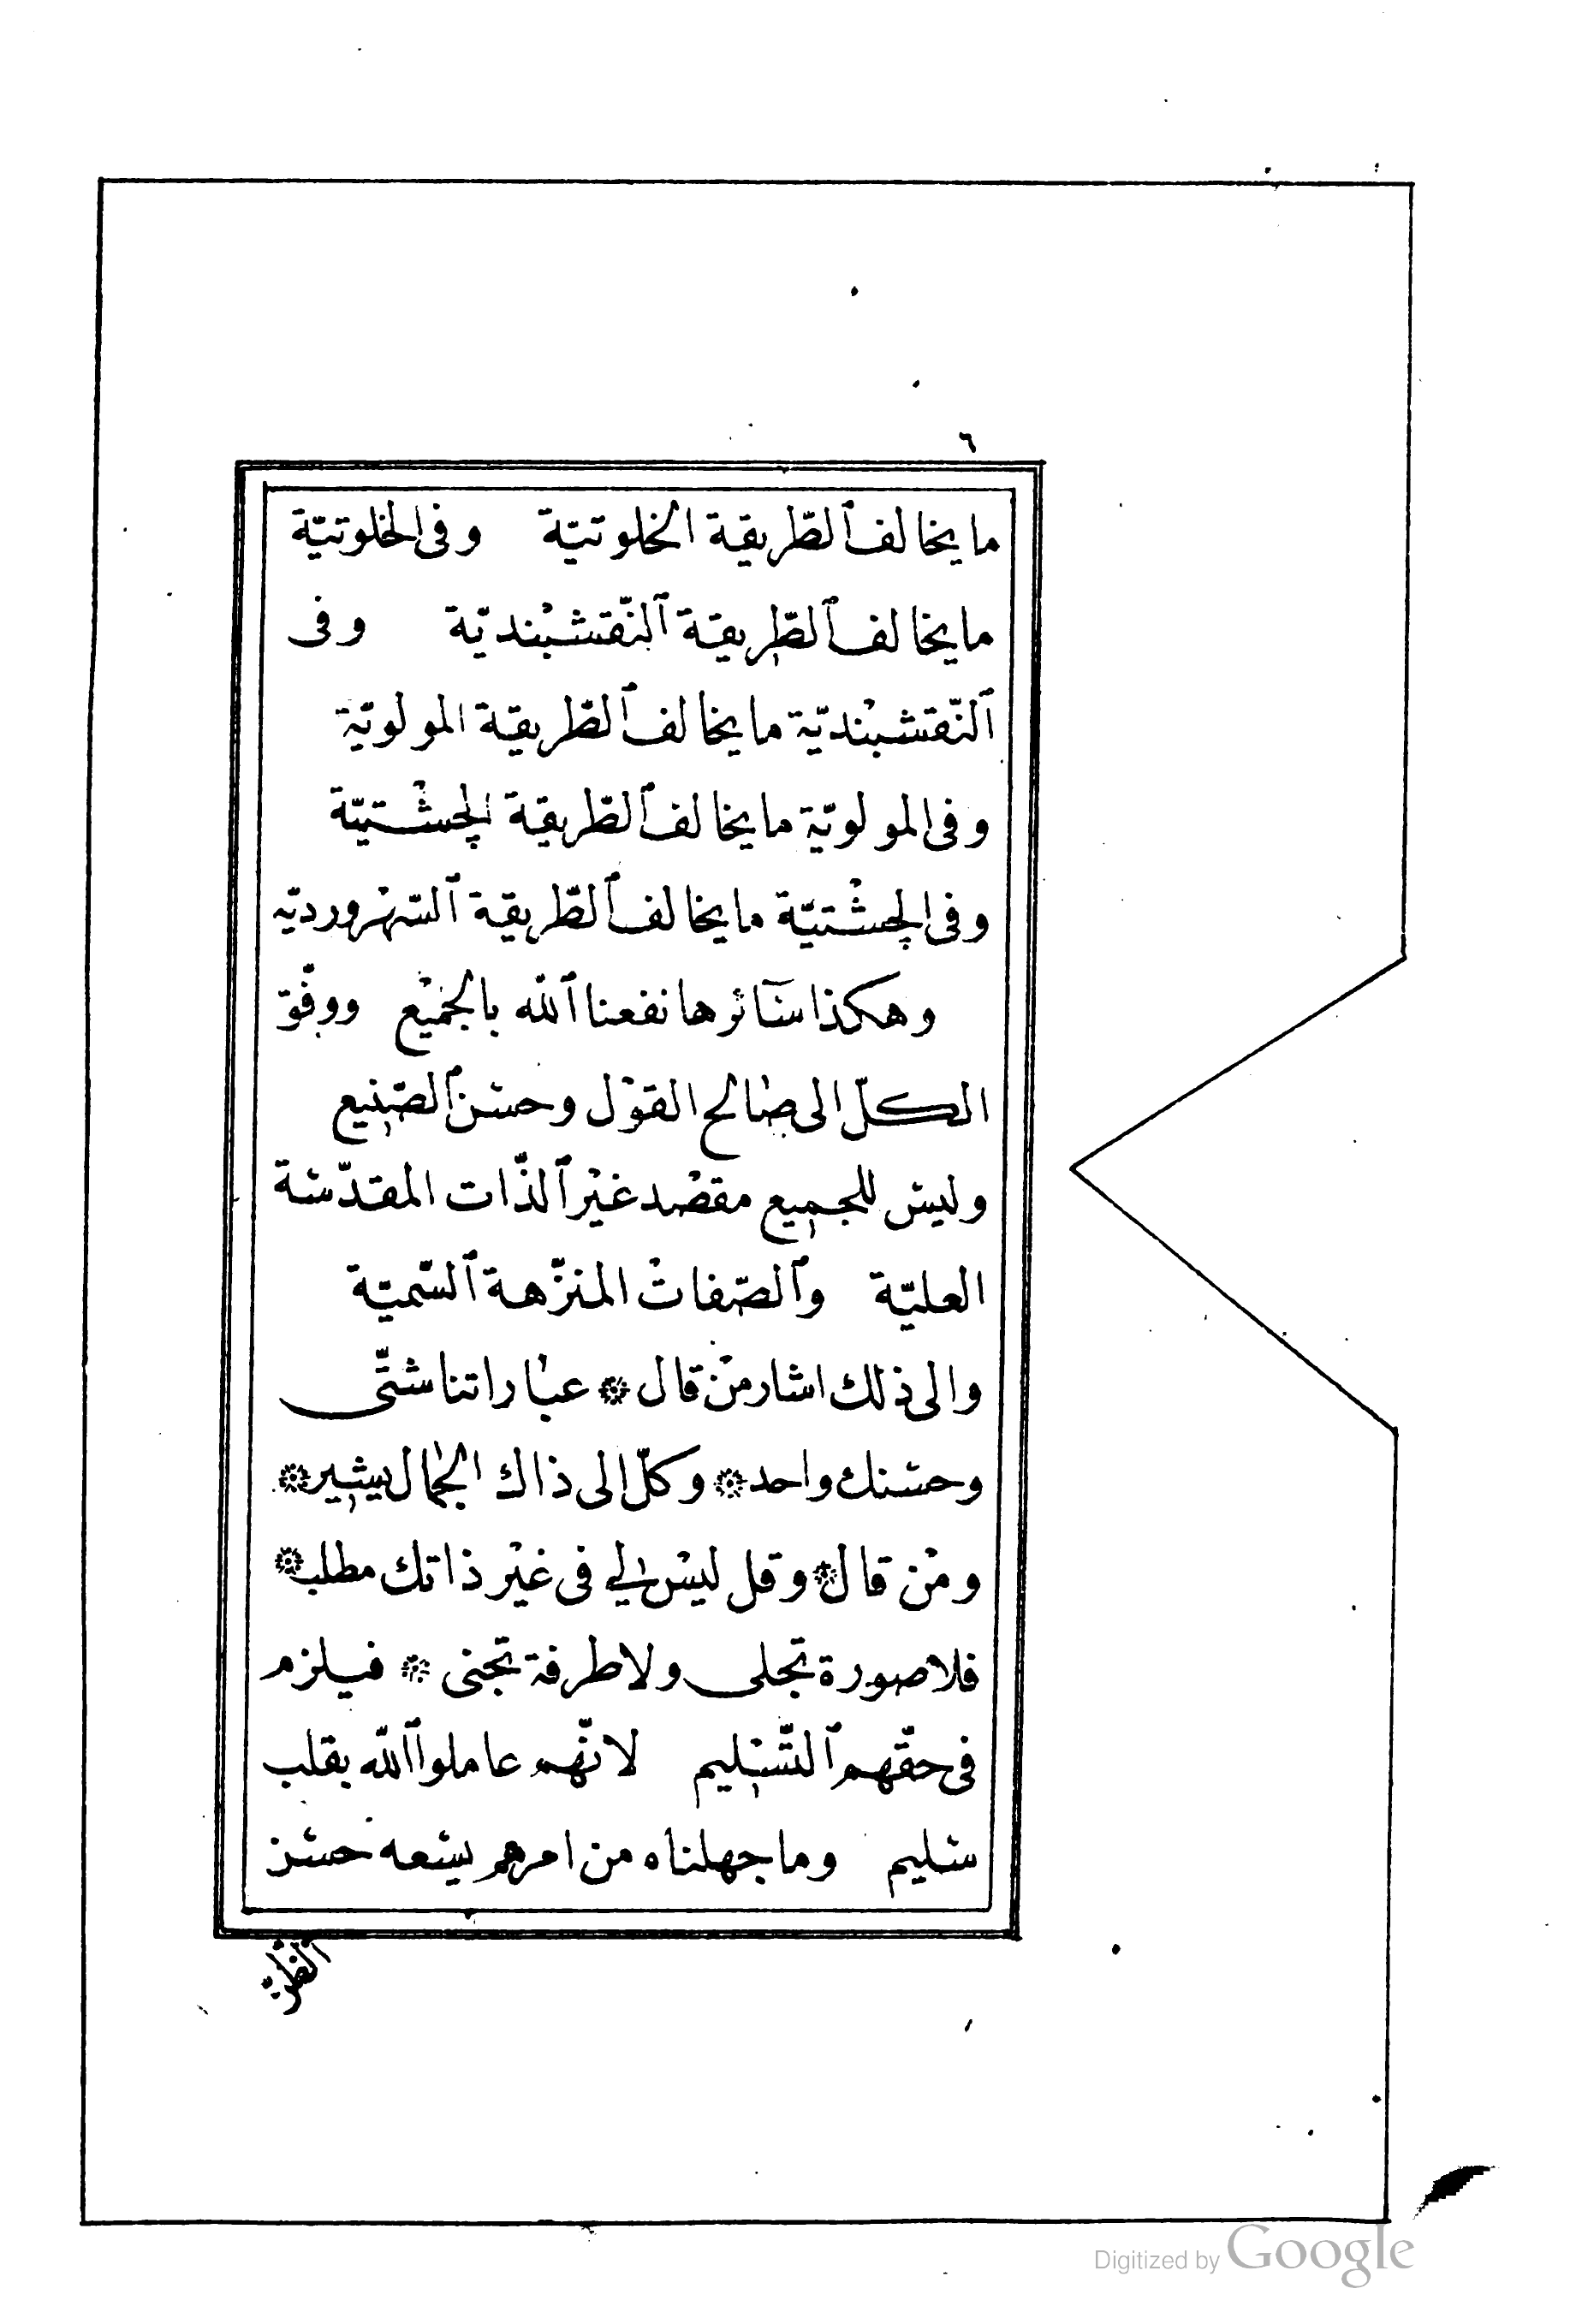 ٦
ما يخالف ٱلطّريقة الخلوتيّة وفى الخلوتيّة
ما يخالف ٱلطّريقة ٱلنّقشبنديّة وفى
ٱلنّقشبنديّة ما يخالف ٱلطّريقة المولويّة
وفى المولويّة ما يخالف ٱلطّريقة الچشْتيّة
وفى الچشْتيّة ما يخالف ٱلطّريقة ٱلسّهْرورديّه
وهكذا سَآئرها نفعنا ٱللّه بالجميْع ووفّق
الكلّ الى صالح القوْل وحسْن ٱلصّنيع
وليسْ للجميع مقصْد غيْر ٱلذّات المقدّسة
العليّة وٱلصّفات المنزّهة ٱلسّميّة
والى ذلك اشار منْ قال ❋ عباراتنا شتّى
وحسْنك واحد ❋ وكلّ الى ذاك الجمال يشير ❋
ومنْ قال ❋ وقل ليسْ لي فى غيْر ذاتك مطلب ❋
فلا صورة تجلى ولا طرفة تجنى ❋ فيلزم
فى حقّهم ٱلتّسْليم لانّهم عاملوا ٱللّه بقلب
سليم وما جهلناه من امرهم يسعه حسْن
ٱلظّنّ
Digitized by Google